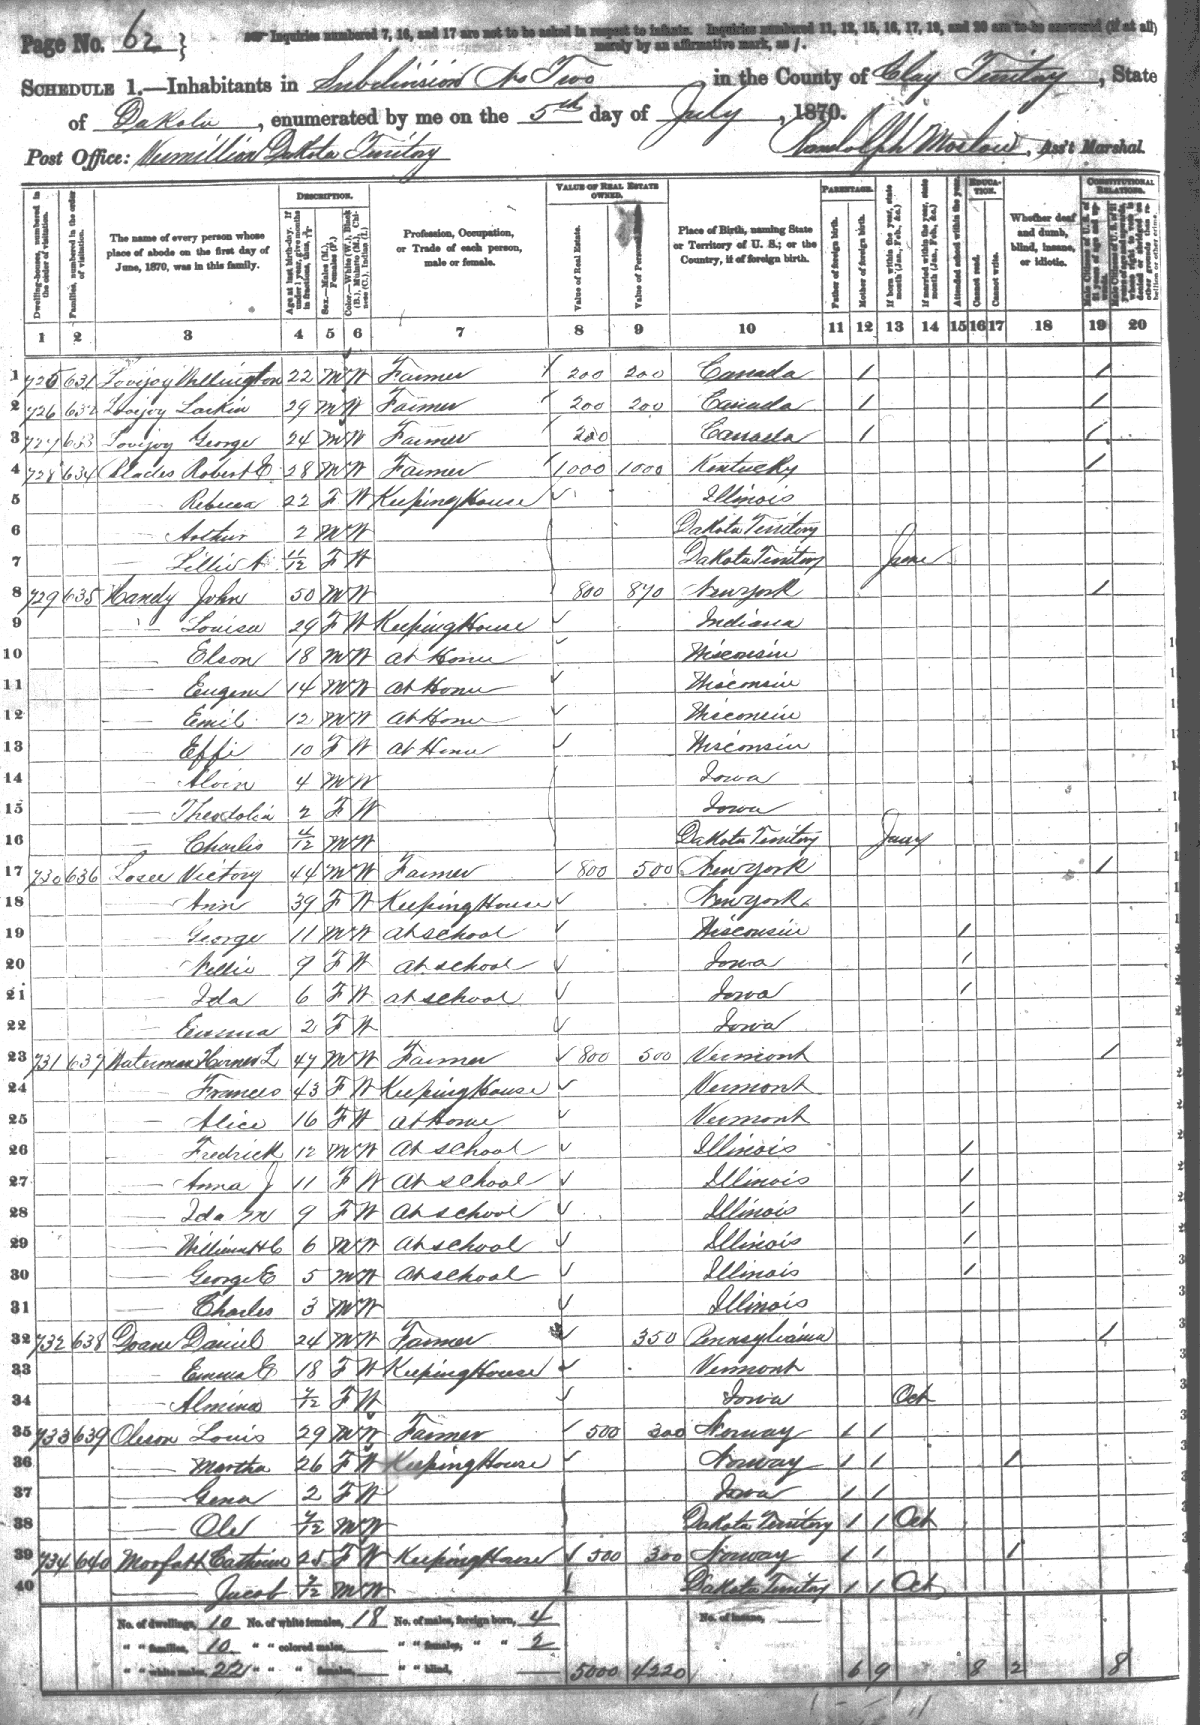 Page No. 62
Inquiries numbered 7, 16, and 17 are not to be asked in respect to infants. Inquiries numbered 11, 12, 15, 16, 17, 19, and 20 are to be answered (if at all)
merely by an affirmative mark, as /.
SCHEDULE 1.—Inhabitants in Subdivision No Two, in the County of Clay Territory, State
of Dakota, enumerated by me on the 5th day of July, 1870.
Post Office: Vermillion Dakota Territory Randolph, Ass't Marshal.
DESCRIPTION. VALUE OF REAL ESTATE OWNED. PARENTAGE. EDUCATION. CONSTITUTIONAL RELATIONS.
Dwelling-houses, numbered in the order of visitation. Families, numbered in the order of visitation. The name of every person whose place of abode on the first day of June, 1870, was in this family. Age at last birth-day. If under 1 year, give months in fractions, thus, Sex.—Males (M.), Females (F.) Color.—White (W.), Black (B.), Mulatto (M.), Chinese (C.), Indian (I.) Profession, Occupation, or Trade of each person, male or female. Value of Real Estate. Value of Personal Place of Birth, naming State or Territory of U. S.; or the Country, if of foreign birth. Father of foreign birth. Mother of foreign birth. If born within the year, state month (Jan., Feb., &c.) If married within the year, state month (Jan., Feb., &c.) Attended school within the year. Cannot read. Cannot write. Whether deaf and dumb, blind, insane, or idiotic.
1 2 3 4 5 6 7 8 9 10 11 12 13 14 15 16 17 18 19 20
1 725 631 Lovijoy Willington 22 M W Farmer 200 200 Canada / /
2 726 632 Lovijoy Larkin 29 M W Farmer 200 200 Canada / /
3 727 633 Lovijoy George 24 M W Farmer 200 Canada / /
4 728 634 Blades Robert E 28 M W Farmer 1000 1000 Kentucky /
5 — Rebecca 22 F W Keeping House Illinois
6 — Arthur 2 M W Dakota Territory
7 — Lillie A 11/12 F W Dakota Territory June
8 729 635 Handy John 50 M W 800 870 New York /
9 — Louisa 29 F W Keeping House Indiana
10 — Elson 18 M W At Home Wisconsin
11 — Eugene 14 M W At Home Wisconsin
12 — Emil 12 M W At Home Wisconsin
13 — Effi 10 F W At Home Wisconsin
14 — Alvin 4 M W Iowa
15 — Theodolia 2 F W Iowa
16 — Charlis 4/12 M W Dakota Territory Jany
17 730 636 Losee Victory 44 M W Farmer 800 500 New York /
18 — Ann 39 F W Keeping House New York
19 — George 11 M W At school Wisconsin /
20 — Nellie 9 F W At school Iowa /
21 — Ida 6 F W At school Iowa /
22 — Emma 2 F W Iowa
23 731 637 Waterman L 47 M W Farmer 800 500 Vermont /
24 — Frances 43 F W Keeping House Vermont
25 — Alice 16 F W At Home Vermont
26 — Fredrick 12 M W At school Illinois /
27 — Anna J 11 F W At school Illinois /
28 — Ida M 9 F W At school Illinois /
29 — William H C 6 M W At school Illinois /
30 — George E 5 M W At school Illinois /
31 — Charles 3 M W Illinois
32 732 638 Doane Daniel 24 M W Farmer 350 Pennsylvania /
33 — Emma E 18 F W Keeping House Vermont
34 — Almina 7/12 F W Iowa Oct
35 733 639 Oleson Louis 29 M W Farmer 500 300 Norway / /
36 — Martha 26 F W Keeping House Norway / / /
37 — Gena 2 F W Iowa / /
38 — Ole 7/12 M W Dakota Territory / / Oct
39 734 640 Catherine 25 F W Keeping House 500 300 Norway / / /
40 — Jacob 7/12 M W Dakota Territory / / Oct
No. of dwellings, 10 No. of white females, 18 No. of males, foreign born, 4 No. of insane, —
" " families, 10 " " colored males, — " " females, " " 2
" " white males, 22 " " " females, — " " blind, — 5000 4220 6 9 8 2 8